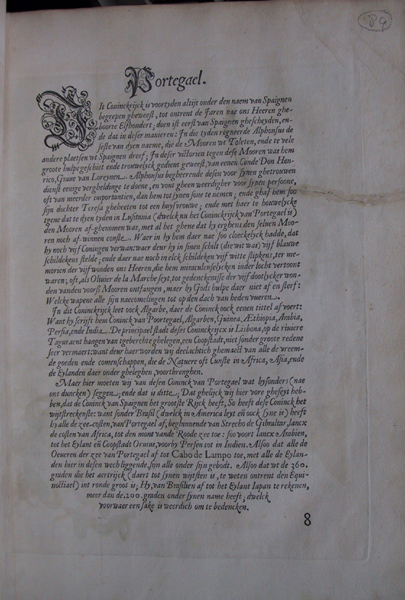 84
Portegael.
Dit Coninckrijck is voortyden altijt onder den naem van Spaignen
begrepen gheweest, tot ontrent de Jaren nae ons Heeren ghe-
boorte Elfhondert, doen ist eerst van Spaignen ghescheyden, en-
de dat in deser manieren: In die tyden regneerde Alphonsus de
seste van dyen naeme, die de Mooren wt Toleten, ende te vele
andere plaetsen wt Spaignen dreef; In deser victorien tegen dese Mooren was hem
groote hulpe geschiet ende trouwelyck gedient geweest, van eenen Conde Don Hen-
rico, Graef van Loreynen. Alphonsus begheerende desen voor synen ghetrouwen
dienst eenige vergheldinge te doene, en vont gheen weerdigher voor synen persoone,
oft van meerder importantien, dan hem tot synen sone te nemen; ende ghaf hem soo
sijn dochter Teresia gheheeten tot een huysvrouwe; ende met haer te houwelycke
tgene dat te dyen tyden in Lusitania (dwelck nu het Coninckrijck van Portegael is)
den Mooren afghenomen was, met al het ghene dat hy erghens den selven Moo-
ren noch af-winnen conste. Waer in hy hem daer nae soo cloeckelyck hadde, dat
hy noch vijf Coningen verwan: waer deur hy in sijnen schilt (die wit was) vijf blauwe
schildekens stelde; ende daer nae noch in elck schildeken vijf witte stipkens, ter me-
morien der vijf wonden ons Heeren, die hem miraculeuselycken onder hecht vertoont
waren; oft, als Olivier de la Marche seyt, tot gedenckenisse der vijf dootlycker won-
den vanden voors. Mooren ontfangen, maer by Gods hulpe daer niet af en storf:
Welcke wapene alle sijn naecomelingen tot op den dach van heden vueren.
In dit Coninckrijck leet oock Algarbe, daer de Coninck oock eenen tittel af voert:
Want hy schrijft hem Coninck van Portegael, Algarben, Guinea, Æthiopia, Arabia,
Persia, ende India. De principael stadt deses Coninckrijcx is Lisbona, op de riviere
Tagus aent hangen van tgeberchte ghelegen, een Coopstadt, niet sonder groote redene
seer vermaert: want deur haer worden wy deelachtich ghemaeckt van alle de vreem-
de goeden ende comenschappen, die de Natuere oft Cunste in Africa, Asia, ende
de Eylanden daer onder ghelegben, voortbrenghen.
Maer hier moeten wy van desen Coninck van Portegael wat bysonders (nae
ons duncken) seggen, ende dat is ditte. Dat ghelijck wy hier voor gheseyt heb-
ben, dat de Coninck van Spaignen het grootste Rijck heeft, So heeft dese Coninck het
wijtstreckenste: want sonder Brasil (dwelck in America leyt en oock sijne is) heeft
hy alle de zee-costen van Portegael af, beghinnende van Strecho de Gibraltar, lancx
de costen van Africa, tot den mont vande Roode zee toe: soo voort lancx Arabien,
tot het Eylant en Coopstadt Ormus, voorby Persen tot in Indien. Alsoo dat alle de
Oeueren der zee van Portegael af tot Cabo de Lampo toe, met alle de Eylan-
den hier in desen wech liggende, sijn alle onder sijn gebodt. Alsoo dat wt de 360.
graden die het aertrijck (daert tot synen wijtsten is, te weten ontrent den Equi-
noctiael) int ronde groot is; Hy, van Brasilien af tot het Eylant Iapan te rekenen,
meer dan de 200. graden onder synen name heeft; dwelck
voorwaer een sake is weerdich om te bedencken.
8